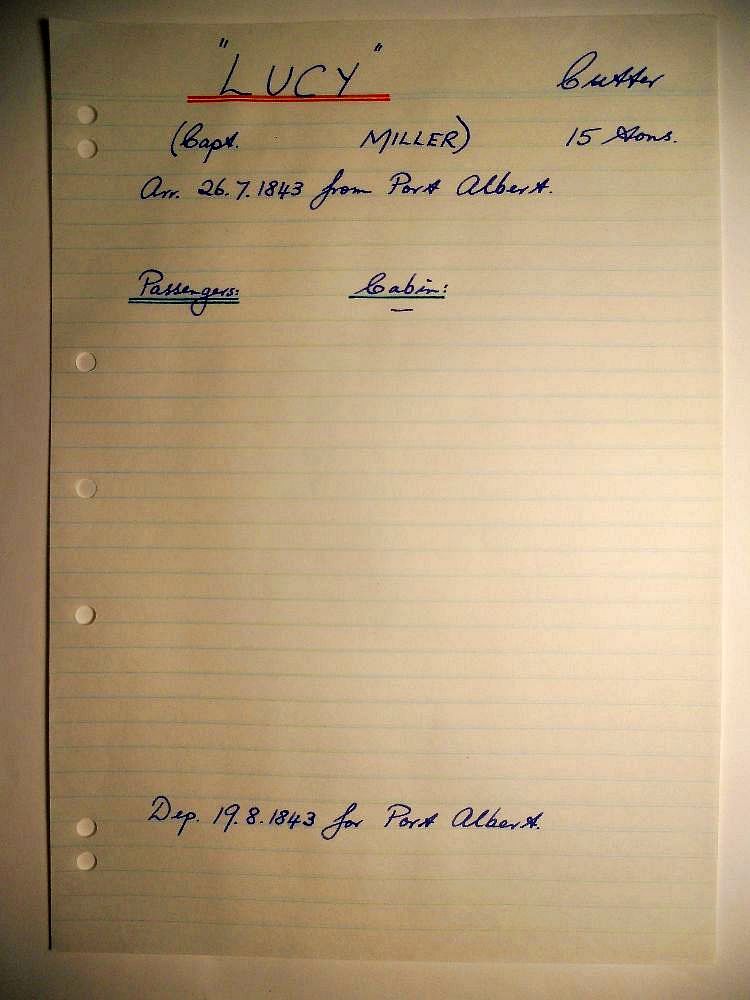 "LUCY" Cutter
(Capt. MILLER) 15 tons.
Arr. 26.7.1843 from Port Albert.
Passengers: Cabin:
—
Dep. 19.8.1843 for Port Albert.